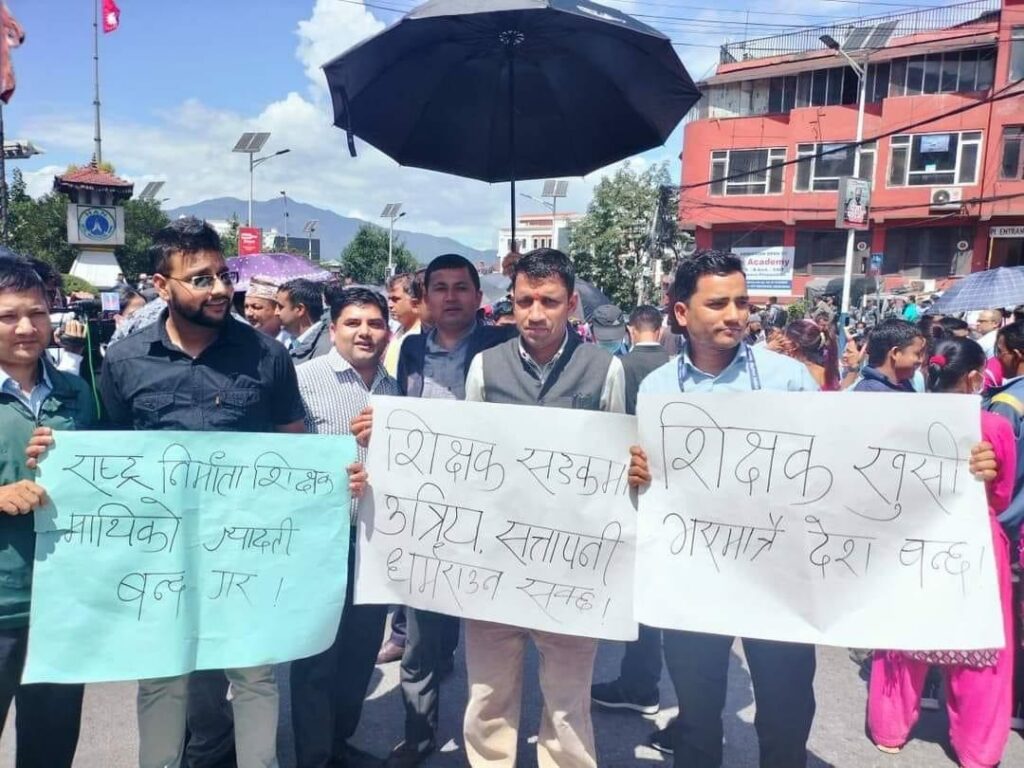 राष्ट्र निर्माता शिक्षक
माथिको ज्यादती
बन्द गर !
शिक्षक सडकमा
उत्रिए, सत्तापनी
धर्मराउन सक्छ !
शिक्षक खुसी
भएमात्रै देश बन्छ।
Academy
ENTRAN